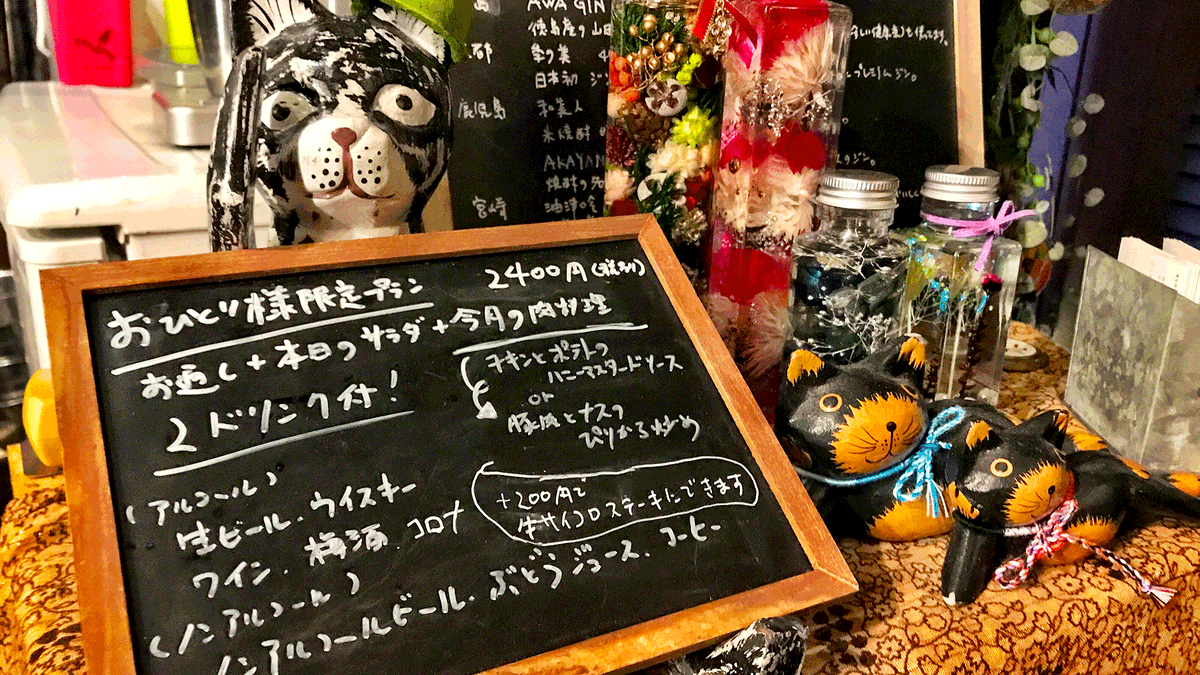 おひとり様限定プラン 2400円(税別)
お通し+本日のサラダ+今月の肉料理
2ドリンク付!
チキンとポテトの
ハニーマスタードソース
or
豚肉とナスの
ぴりから炒め
+200円で
牛サイコロステーキにできます
(アルコール)
生ビール・ウイスキー
ワイン・梅酒・コロナ
(ノンアルコール)
ノンアルコールビール・ぶどうジュース・コーヒー
AWA GIN
徳島産の山田
季の美
日本初 ジン
鹿児島 和美人
米焼酎
AKAYAN
焼酎の
宮崎 油津